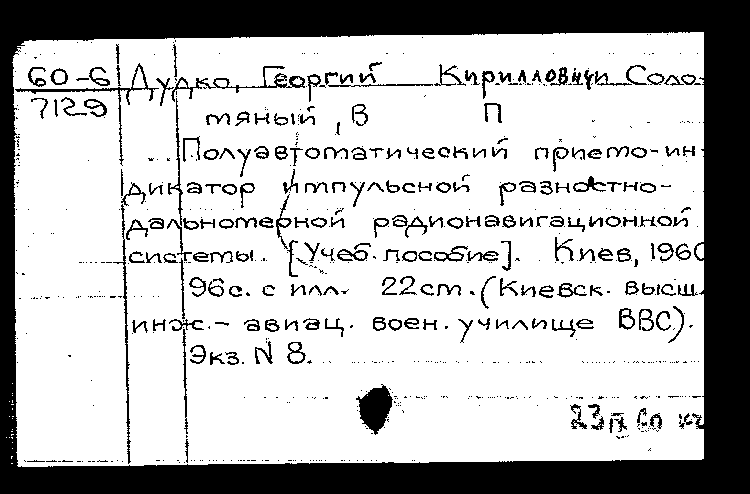 60-6 Дудко, Георгий Кириллович и Соло-
7129 тяный, В П
Полуавтоматический приемо-ин-
дикатор импульсной разностно-
дальномерной радионавигационной
системы. [Учеб. пособие]. Киев, 1960
96с. с илл. 22см. (Киевск. высш.
инж.- авиац. воен. училище ВВС).
Экз. N 8.
23 IX 60